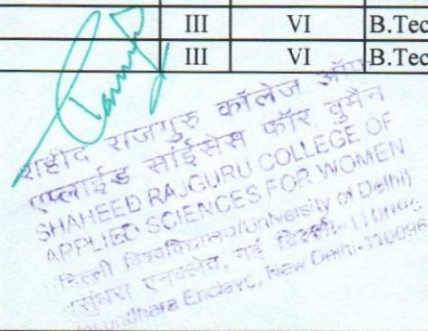 III VI B.Tec
III VI B.Tec
शहीद राजगुरु कॉलेज ऑफ
एप्लाईड साईंसेस फॉर वुमैन
SHAHEED RAJGURU COLLEGE OF
APPLIED SCIENCES FOR WOMEN
(दिल्ली विश्वविद्यालय/University of Delhi)
वसुंधरा एनक्लेव, नई दिल्ली-110096
Vasundhara Enclave, New Delhi-110096